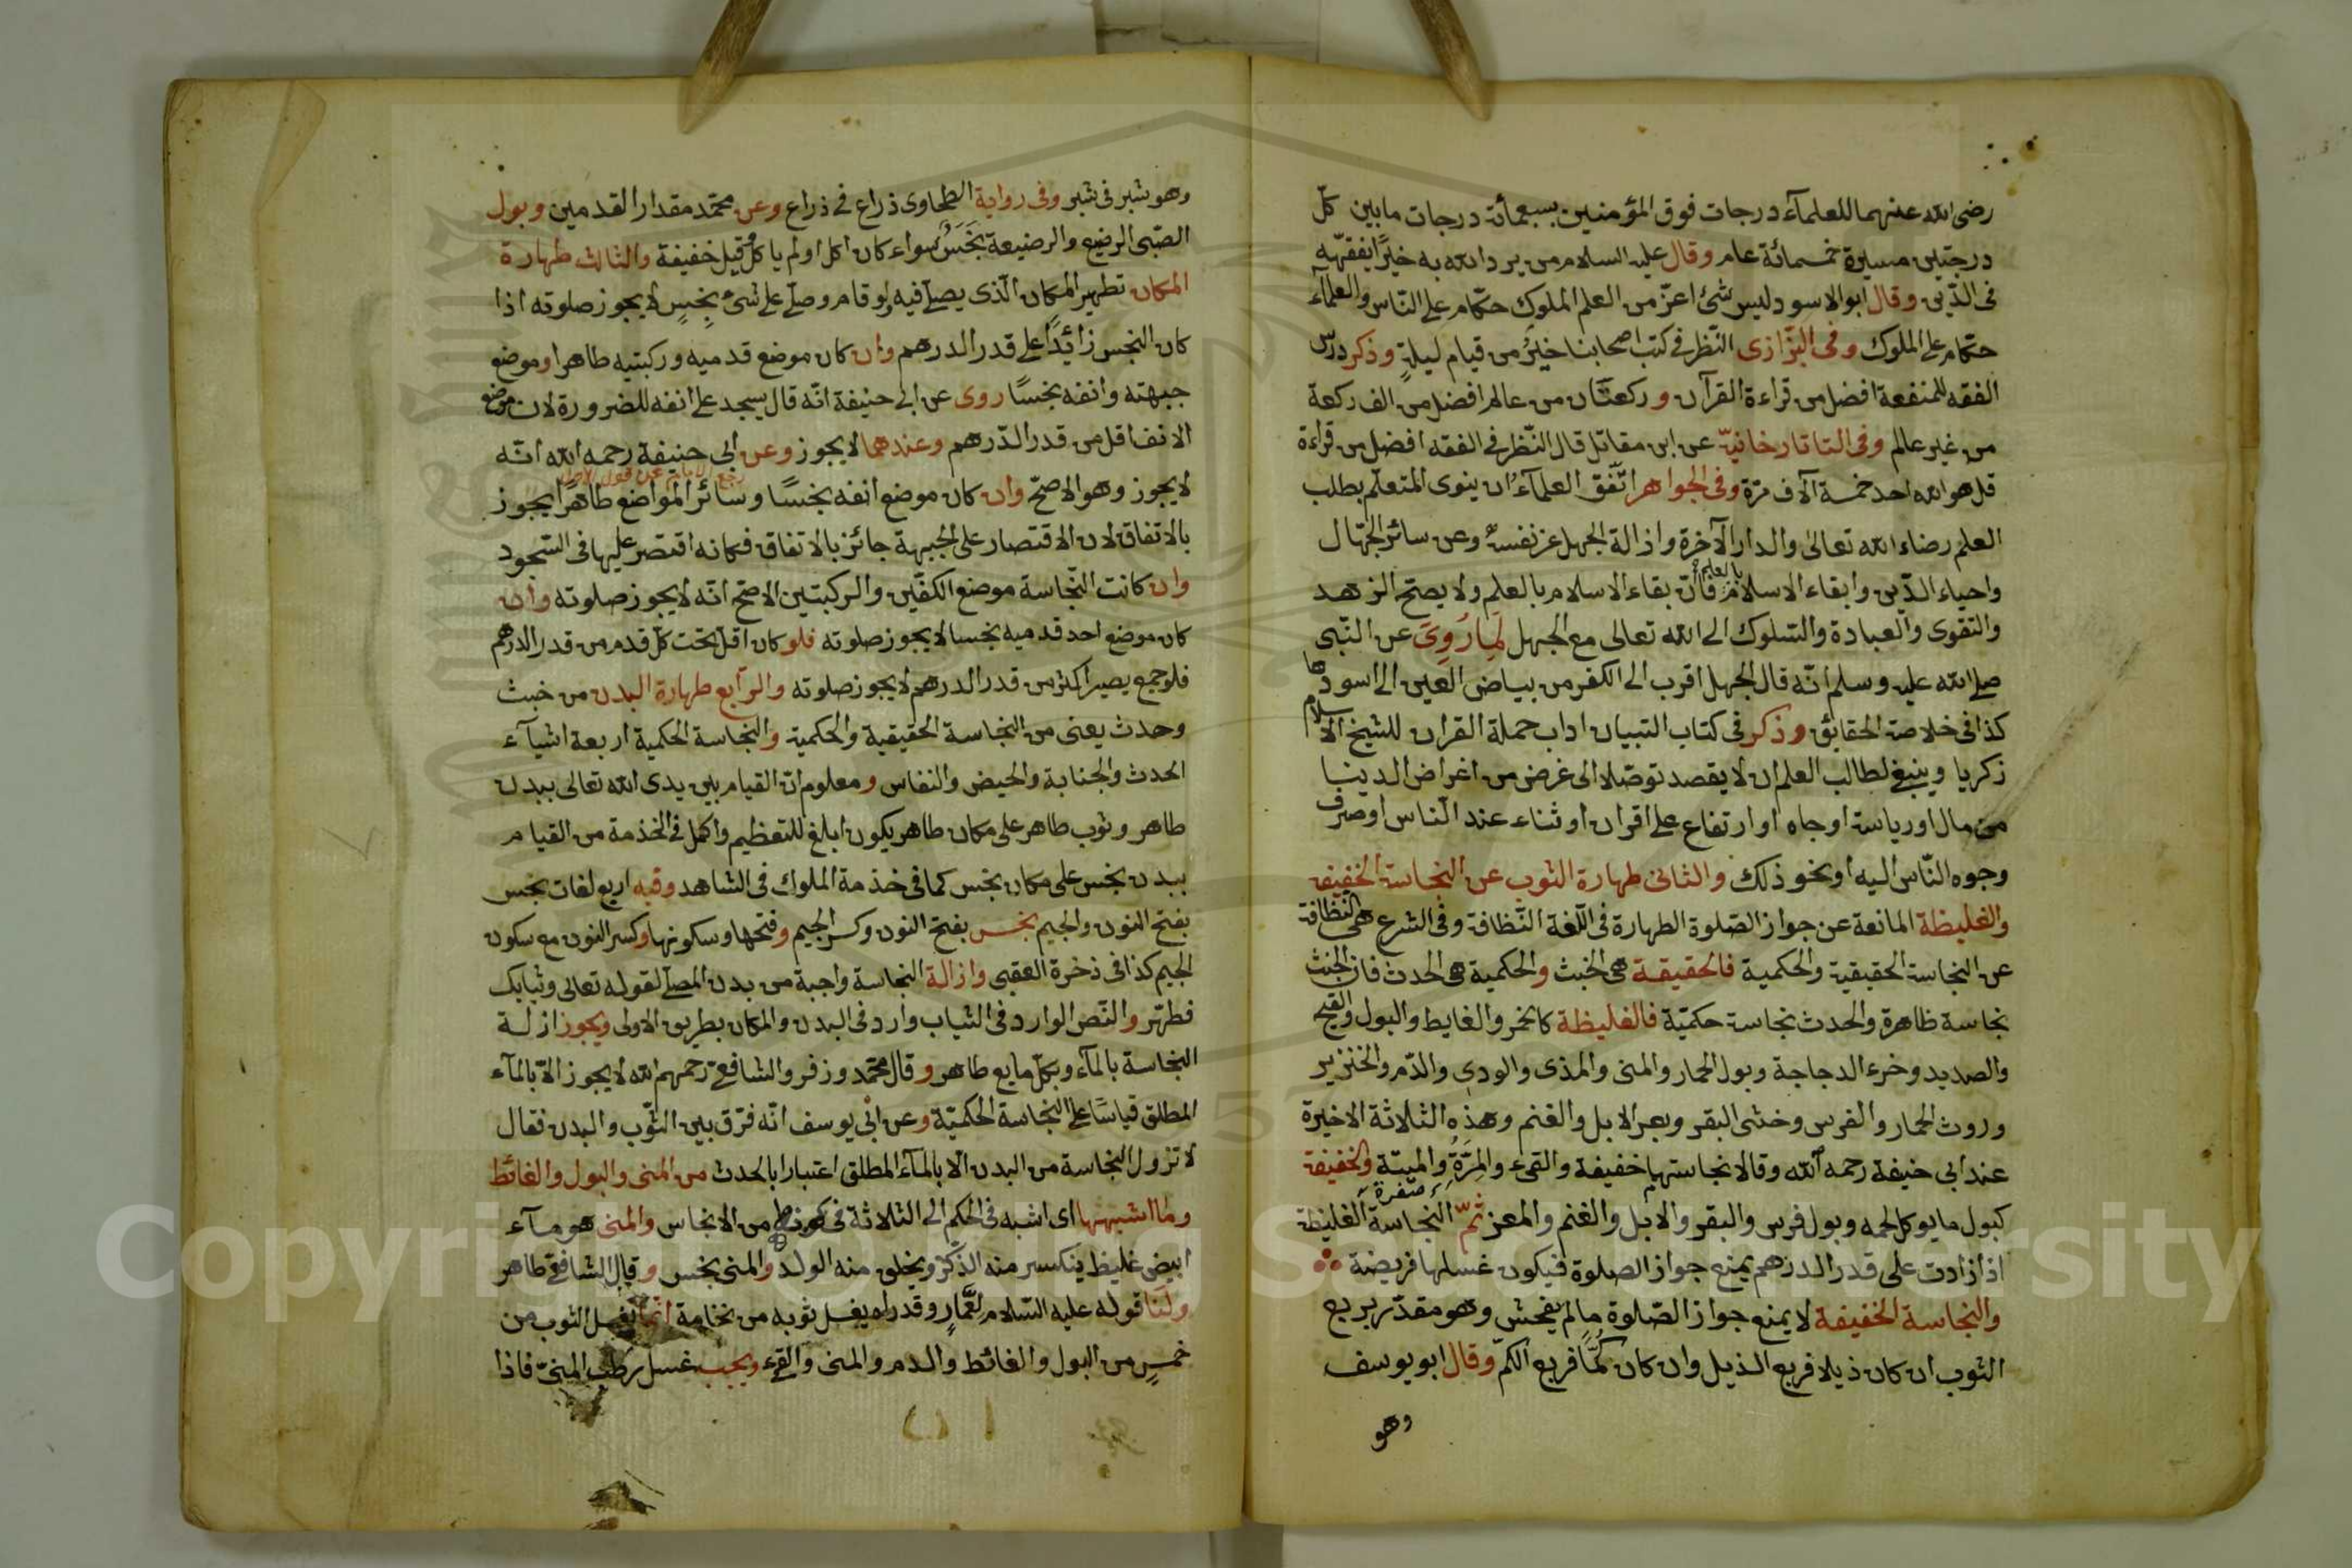 رضى الله عنهما للعلمآء درجات فوق المؤمنين بسبعمائة درجات مابين كلّ
درجتين مسيرة خمسمائة عام وقال عليه السلام من يرد الله به خيرًا يفقّهه
فى الدّين وقال ابوالاسود ليس شئ اعزّ من العلم الملوك حكّام على النّاس والعلمآء
حكّام على الملوك وفى البزّازى النّظر فى كتب اصحابنا خيرٌ من قيام ليلةٍ وذكر درس
الفقه للمنفعة افضل من قراءة القرآن وركعتان من عالم افضل من الف ركعة
من غير عالم وفى التاتارخانيّه عن ابن مقاتل قال النّظر فى الفقه افضل من قراءة
قل هو الله احد خمسة آلاف مرّة وفى الجواهر اتّفق العلمآء ان ينوى المتعلّم بطلب
العلم رضاء الله تعالى والدار الآخرة وازالة الجهل عن نفسه وعن سائر الجهّال
واحياء الدّين وابقاء الاسلام بالعلم فانّ بقاء الاسلام بالعلم ولا يصحّ الزهد
والتقوى والعبادة والسّلوك الى الله تعالى مع الجهل لِمَا رُوِىَ عن النّبى
صلى الله عليه وسلم انّه قال الجهل اقرب الى الكفر من بياض العين الى اسودها
كذا فى خلاصة الحقايق وذكر فى كتاب التبيان اداب حملة القران للشيخ الاسلام
زكريا وينبغى لطالب العلم ان لا يقصد توصّلا الى غرض من اغراض الدينا
من مال او رياسة او جاه او ارتفاع على اقران او ثناء عند النّاس او صرف
وجوه النّاس اليه او نحو ذلك والثانى طهارة الثوب عن النجاسة الخفيفة
والغليظة المانعة عن جواز الصّلوة الطهارة فى اللّغة النّظافة وفى الشرع هى النظافة
عن النجاسة الحقيقية والحكمية فالحقيقة هى الخبث والحكمية هى الحدث فان الخبث
نجاسة ظاهرة والحدث نجاسة حكميّة فالغليظة كالخمر والغايط والبول والقيح
والصديد وخرء الدجاجة وبول الحمار والمنى والمذى والودى والدّم والخنزير
وروث الحمار والفرس وخثى البقر وبعر الابل والغنم وهذه الثلاثة الاخيرة
عند ابى حنيفة رحمه الله وقالا نجاستها خفيفة والقىء والمِرَّةِ صفرة والميتة والخفيفة
كبول ما يوكل لحمه وبول فرس والبقر والابل والغنم والمعز ثمّ النجاسة الغليظة
اذا زادت على قدر الدرهم يمنع جواز الصلوة فيكون غسلها فريضة
والنجاسة الخفيفة لا يمنع جواز الصّلوة مالم يفحش وهو مقدّر بربع
الثوب ان كان ذيلا فربع الذيل وان كان كُمًّا فربع الكمّ وقال ابو يوسف
وهو
وهو شبر فى شبر وفى رواية الطحاوى ذراع فى ذراع وعن محمّد مقدار القدمين وبول
الصّبى الرضيع والرضيعة نَجَسٌ سواء كان اكل اولم ياكل وقيل خفيفة والثالث طهارة
المكان تطهير المكان الّذى يصلّى فيه ولو قام وصلّى على شىء نجِسٍ لا يجوز صلوته اذا
كان النجس زائدًا على قدر الدرهم وان كان موضع قدميه وركبتيه طاهرا وموضع
جبهته وانفه نجسًا روى عن ابى حنيفة انّه قال يسجد على انفه للضرورة لان موضع
الانف اقل من قدر الدّرهم وعندهما لا يجوز وعن ابى حنيفة رحمه الله انّه
رجع الامام عن قول الاول
لا يجوز وهو الاصحّ وان كان موضع انفه نجسًا وسائر المواضع طاهرًا يجوز
بالاتفاق لان الاقتصار على الجبهة جائز بالاتفاق فكانه اقتصر عليها فى السّجود
وان كانت النّجاسة موضع الكفّين والركبتين الاصحّ انّه لا يجوز صلوته وان
كان موضع احد قدميه نجسا لا يجوز صلوته فلو كان اقلّ تحت كلّ قدم من قدر الدرهم
فلو جمع يصير اكثر من قدر الدرهم لا يجوز صلوته والرّابع طهارة البدن من خبث
وحدث يعنى من النجاسة الحقيقية والحكمية والنجاسة الحكمية اربعة اشيآء
الحدث والجنابة والحيض والنفاس ومعلوم انّ القيام بين يدى الله تعالى ببدن
طاهر وثوب طاهر على مكان طاهر يكون ابلغ للتعظيم واكمل فى الخذمة من القيام
ببدن نجس على مكان نجس كما فى خذمة الملوك فى الشاهد وفيه اربع لغات نجس
بفتح النون والجيم نجس بفتح النون وكسر الجيم وفتحها وسكونها وكسر النون مع سكون
الجيم كذا فى ذخرة العقبى وازالة النجاسة واجبة من بدن المصلّى لقوله تعالى وثيابك
فطهّر والنّص الوارد فى الثياب وارد فى البدن والمكان بطريق الاولى ويجوز ازلة
النجاسة بالمآء وبكلّ مايع طاهر وقال محمّد وزفر والشافعى رحمهم الله لا يجوز الاّ بالمآء
المطلق قياسًا على النجاسة الحكميّة وعن ابى يوسف انّه فرّق بين الثّوب والبدن فقال
لا تزول النجاسة من البدن الاّ بالمآء المطلق اعتبارا بالحدث من المنى والبول والغائط
وما اشبهها اى اشبه فى الحكم الى الثلاثة فى كونها من الانجاس والمنى هو مآء
ابيض غليظ ينكسر منه الذّكر ويخلق منه الولد والمنى نجس وقال الشافعى طاهر
ولنا قوله عليه السّلام لعَمَّارٍ وقد راه يغسل ثوبه من نخامة انّما يغسل الثوب من
خمسٍ من البول والغائط والدم والمنى والقىء ويجب غسل رطب المنىّ فاذا
Copyright © King Saud University